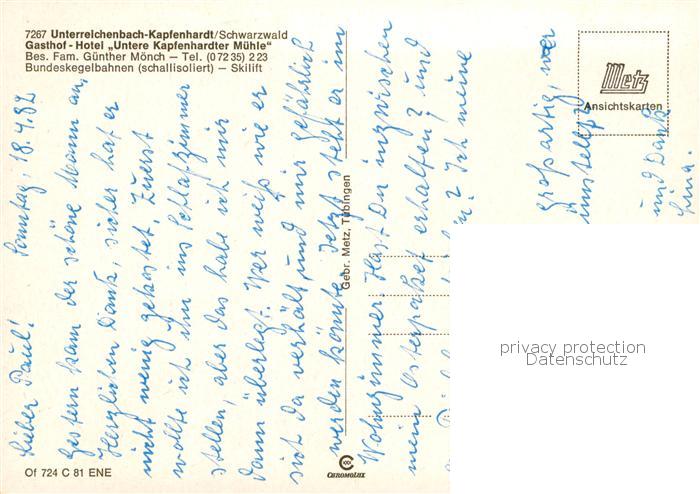 7267 Unterreichenbach-Kapfenhardt/Schwarzwald
Gasthof - Hotel „Untere Kapfenhardter Mühle"
Bes. Fam. Günther Mönch — Tel. (0 72 35) 2 23
Bundeskegelbahnen (schallisoliert) — Skilift
Metz
Ansichtskarten
Lieber Paul! Sonntag, 18.4.82
Gestern kam der schöne Mann an,
Herzlichen Dank, sicher hat er
nicht wenig gekostet. Zuerst
wollte ich ihn ins Schlafzimmer
stellen, aber das habe ich mir
dann überlegt. Wer weiß wie er
sich da verhält und mir gefährlich
werden könnte. Jetzt steht er im
Wohnzimmer. Hast Du inzwischen
mein Osterpaket erhalten? und
Ich meine
Großartig, wer
und Dank
Gebr. Metz, Tübingen
privacy protection
Datenschutz
Of 724 C 81 ENE
CHROMOLUX